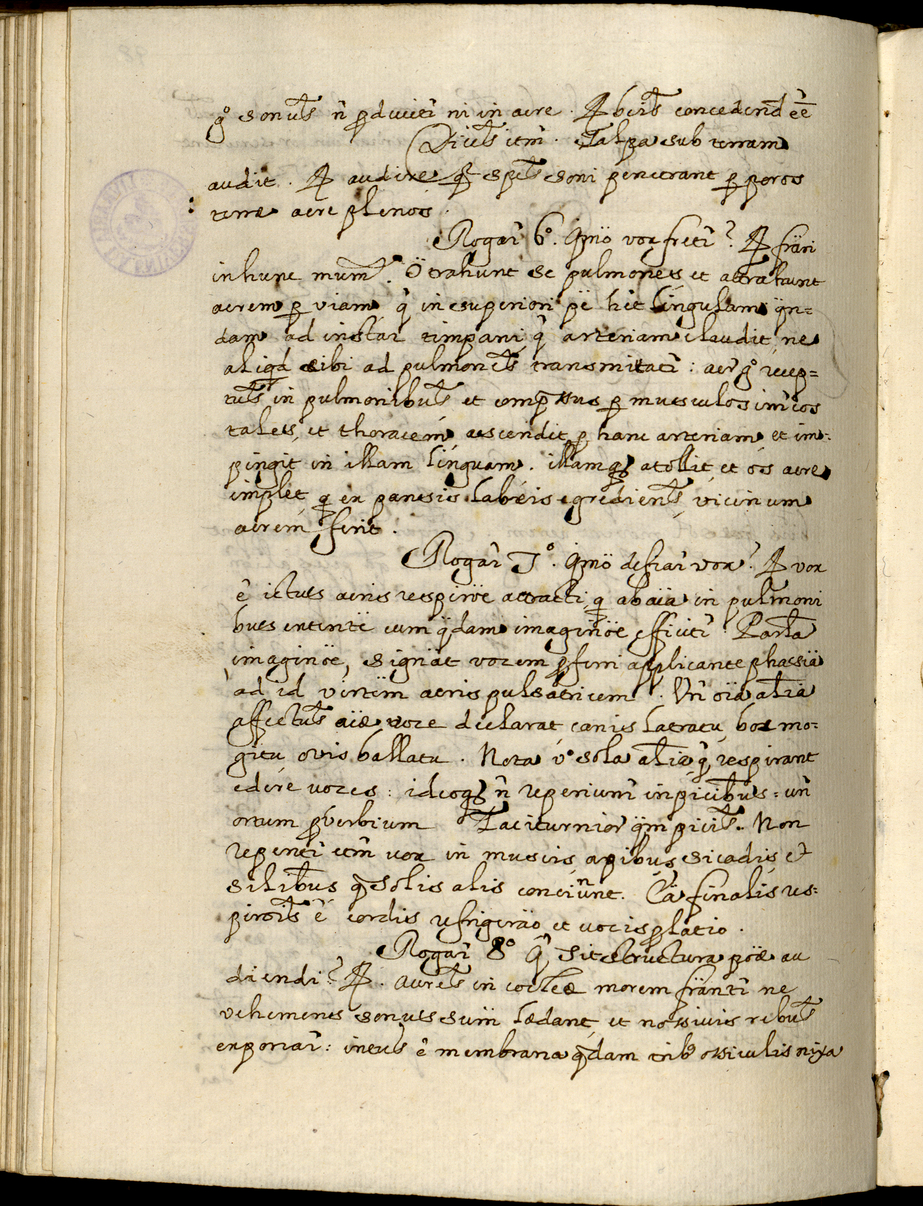 gº sonus ñ pducit̃ ni in aere. R̸ breis concedend ẽẽ
Dices itm̃. Talpa sub terram
audit. R̸ audire q̃ spẽs soni penetrant p poros
terræ aere plenos.
Rogat̃ 6º. Qm̃o vox fiet̃? R̸ fieri
in hunc mum̃. Õ trahunt se pulmones et attrahunt
aerem p viam q̃ in superiori pẽ het lingulam qñ=
dam ad instar timpani q̃ arteriam claudit, ne
aliqd cibi ad pulmones transmitat̃: aer gº recep=
tus in pulmonibus et compssus p musculos int̃cos
tales, et thoracem ascendit p hanc arteriam et im=
pingit in illam linguam. illamq̃ atollit et os aere
implet q ex pansis labris egrediens vicinum
aerem ferit.
Rogat̃ 7º. Qm̃o defiat̃ vox? R̸ vox
ẽ ictus aeris respirõe attracti q ab aĩa in pulmoni
bus cum qdam imaginõe efficit̃
imaginõe, signãt vocem pferri applicante phãsiã
ad id virtũm aeris pulsatricem. Uñ oĩa alia
affectus aĩæ voce declarat canis latratu, bos mo=
gitu ovis ballatu. Nota vº sola alia q̃ respirant
edere voces: ideoq̃ ñ reperiunt̃ in piscibus: uñ
ortum pverbium Taciturnior qm̃ piscis. Non
reperit̃ etm̃ vox in muscis apibus sicadis et
silibus q̃ solis alis concinunt. Cã finalis res=
pirõis ẽ cordis refrigerãõ et vocis platio.
Rogat̃ 8º Q̃ sit structura poẽ au
diendi? R̸. aures in cocleæ morem ne
vehemens sonus suũ lædant, et nossivis rebus
exponat̃: intus ẽ membrana qdam trib ossiculis nixa